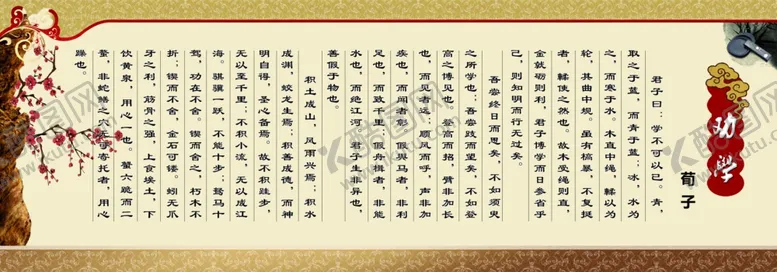 劝學
荀子
君子曰：学不可以已。青，
取之于蓝，而青于蓝；冰，水为
之，而寒于水。木直中绳，輮以为
轮，其曲中规。虽有槁暴，不复挺
者，輮使之然也。故木受绳则直，
金就砺则利，君子博学而日参省乎
己，则知明而行无过矣。
吾尝终日而思矣，不如须臾
之所学也；吾尝跂而望矣，不如登
高之博见也。登高而招，臂非加长
也，而见者远；顺风而呼，声非加
疾也，而闻者彰。假舆马者，非利
足也，而致千里；假舟楫者，非能
水也，而绝江河。君子生非异也，
善假于物也。
积土成山，风雨兴焉；积水
成渊，蛟龙生焉；积善成德，而神
明自得，圣心备焉。故不积跬步，
无以至千里；不积小流，无以成江
海。骐骥一跃，不能十步；驽马十
驾，功在不舍。锲而舍之，朽木不
折；锲而不舍，金石可镂。蚓无爪
牙之利，筋骨之强，上食埃土，下
饮黄泉，用心一也。蟹六跪而二
螯，非蛇鳝之穴无可寄托者，用心
躁也。